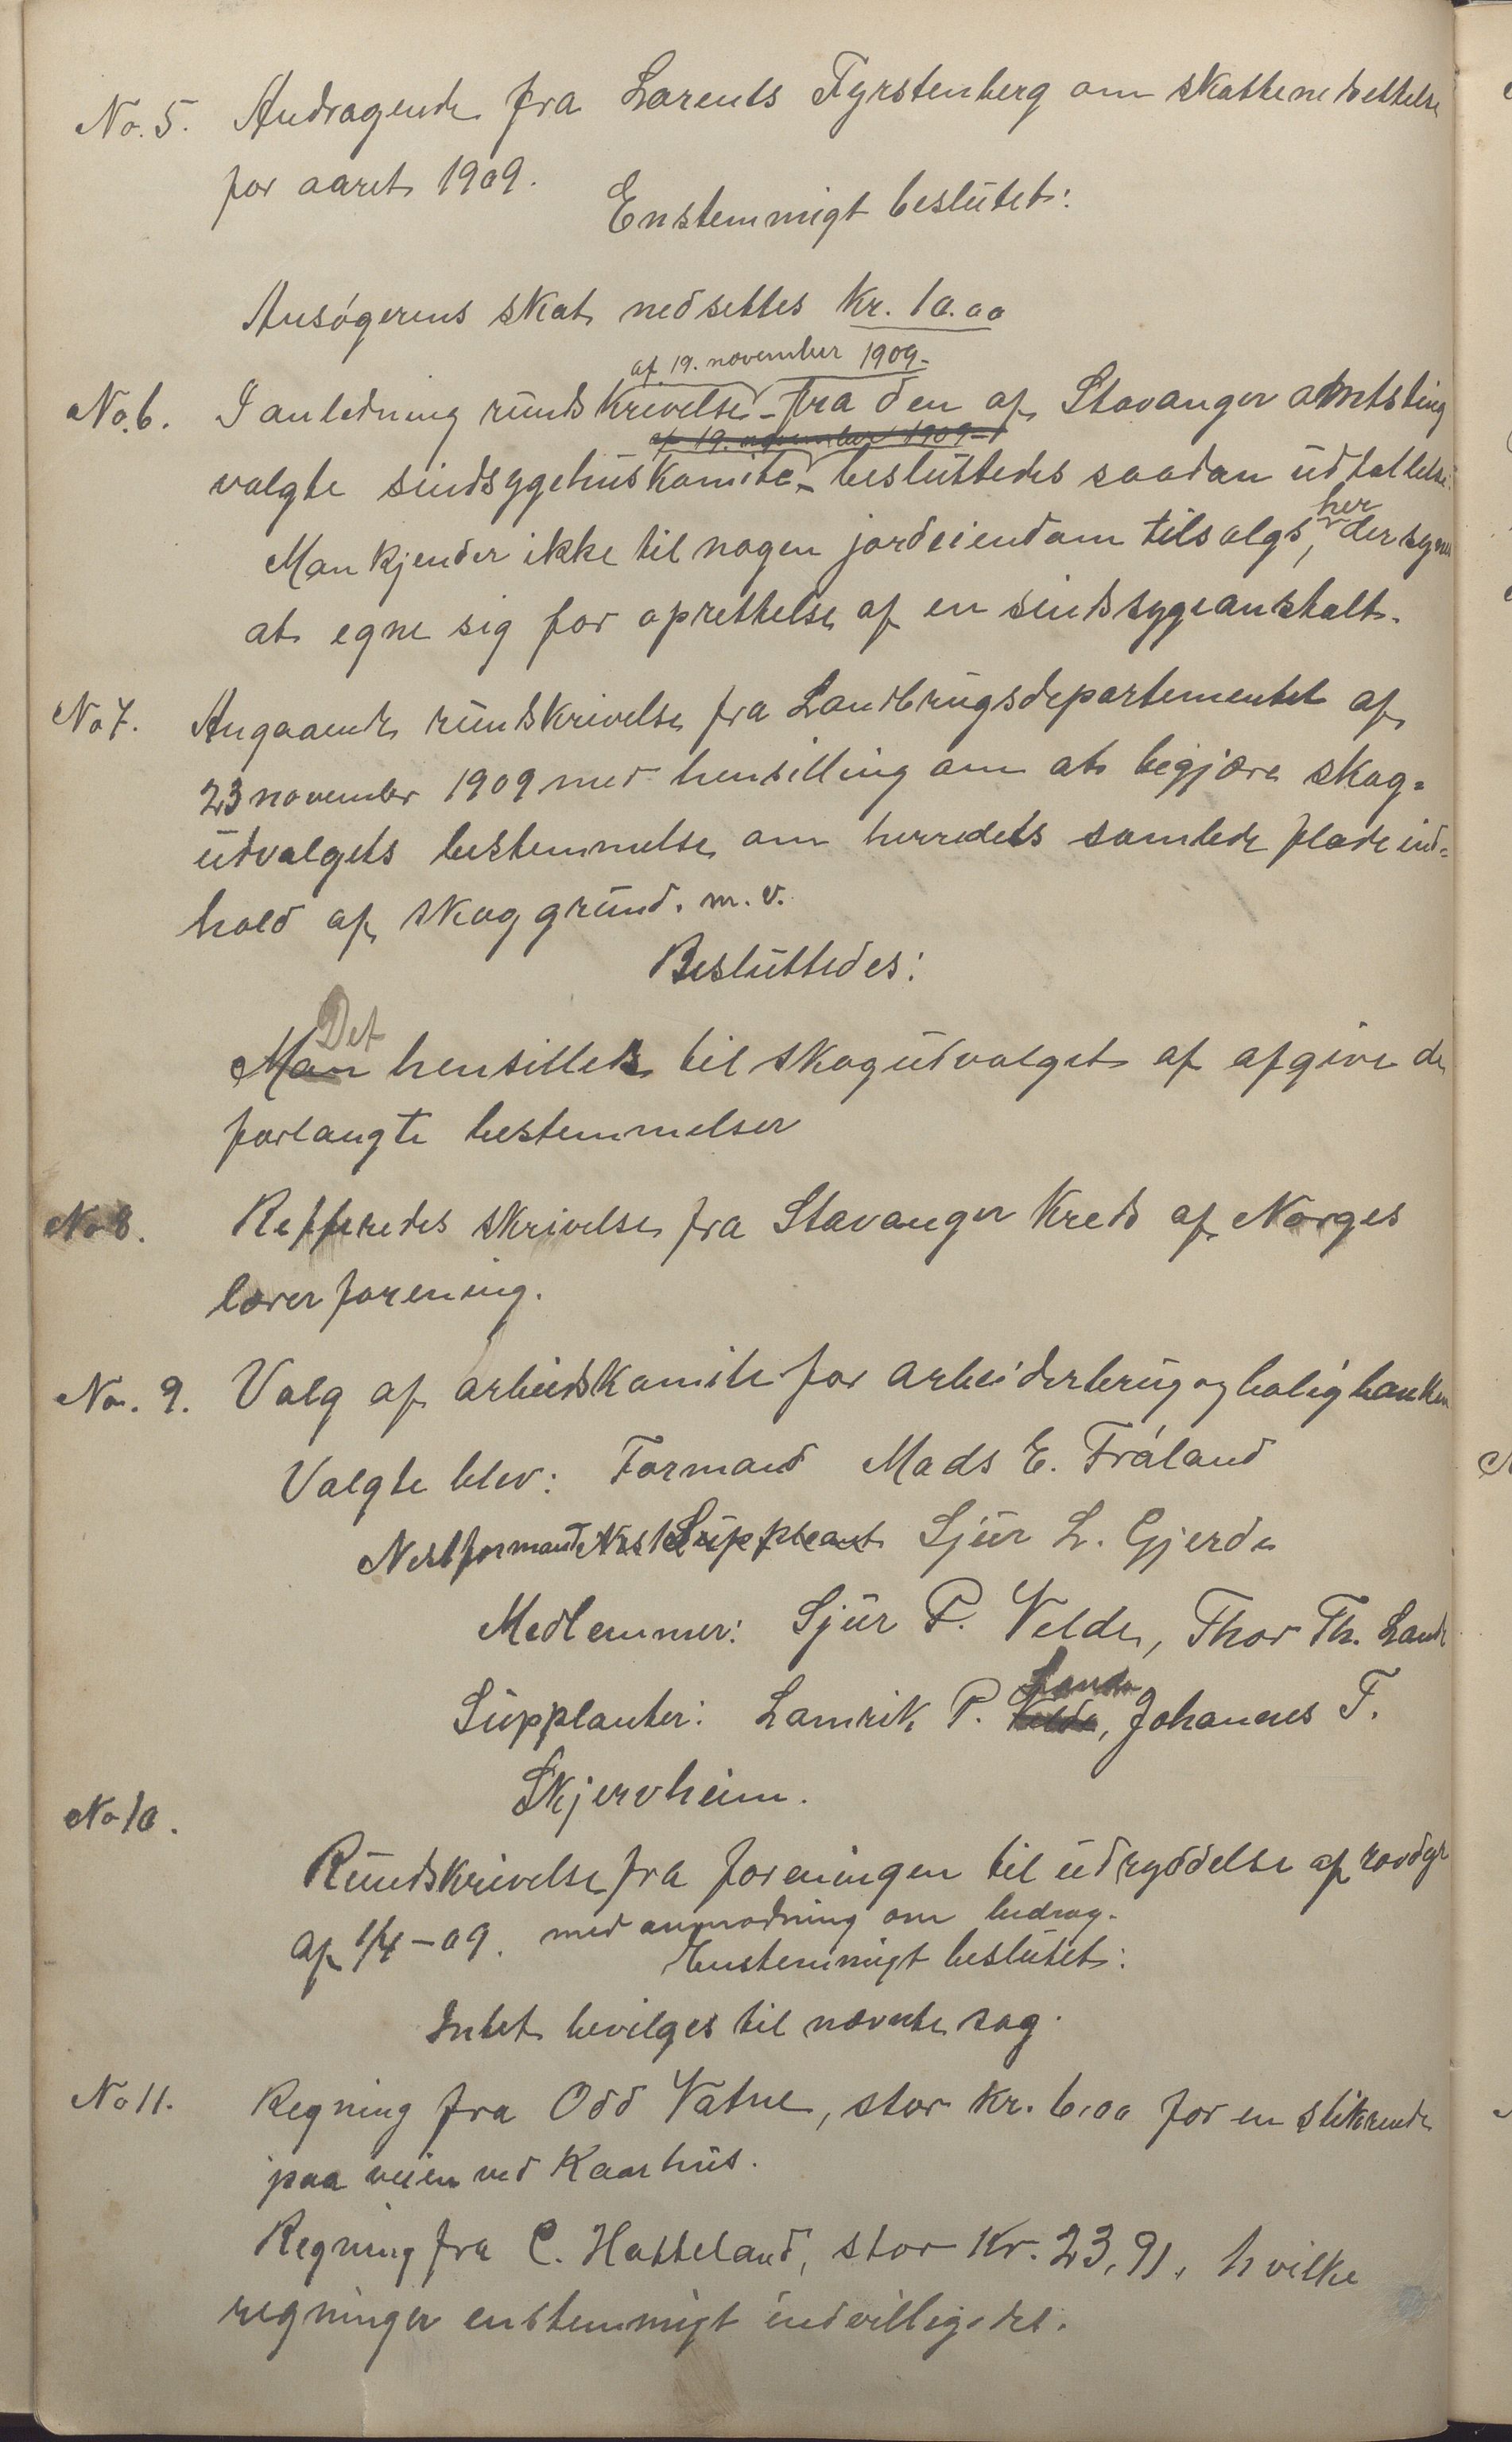 No. 5. Andragende fra Lorents Fyrstenberg om skattenedsettelse
for aaret 1909.
Enstemmigt beslutet:
Ansøgerens skat nedsettes kr. 10.00
af 19. november 1909-
No. 6. I anledning rundskrivelse - fra den af Stavanger amtsting
af 19. november 1909-
valgte sindsygehuskomite - besluttedes saadan udtallelse:
her
Man kjender ikke til nogen jordeiendom tilsalgs, der synes
at egne sig for oprettelse af en sindssygeanstalt.
No 7. Angaaende rundskrivelse fra Landbrugsdepartementet af
23 november 1909 med henstilling om at begjære skog=
udvalgets bestemmelse om herredets samlede flade ind=
hold af skoggrund. m. v.
Besluttedes:
Det
Man henstilles til skogudvalget af afgive de
forlangte bestemmelser
No 8. Reffferedes skrivelse fra Stavanger Kreds af Norges
lærerforening.
No. 9. Valg af arbeidskomite for arbeiderbrug og boligbanken
Valgte blev: Formand Mads E. Fráland
Nestformand Nest Suppleant Sjur L. Gjerde
Medlemmer: Sjur P. Velde, Thor Th. Lande
Lande
Supplanter: Lamrik P. Velde, Johannes T.
Skjervheim.
No 10.
Rundskrivelse fra foreningen til udryddelse af rovdyr
af 1/4-09. med anmodning om bidrag.
Enstemmigt beslutet:
Intet bevilges til nævnte sag.
No 11. Regning fra Odd Vatne, stor kr. 6.00 for en stikrende
paa veien ved Kaarhus.
Regning fra C. Hatteland, stor Kr. 23,91, hvilke
regninger enstemmigt indvilligedes.